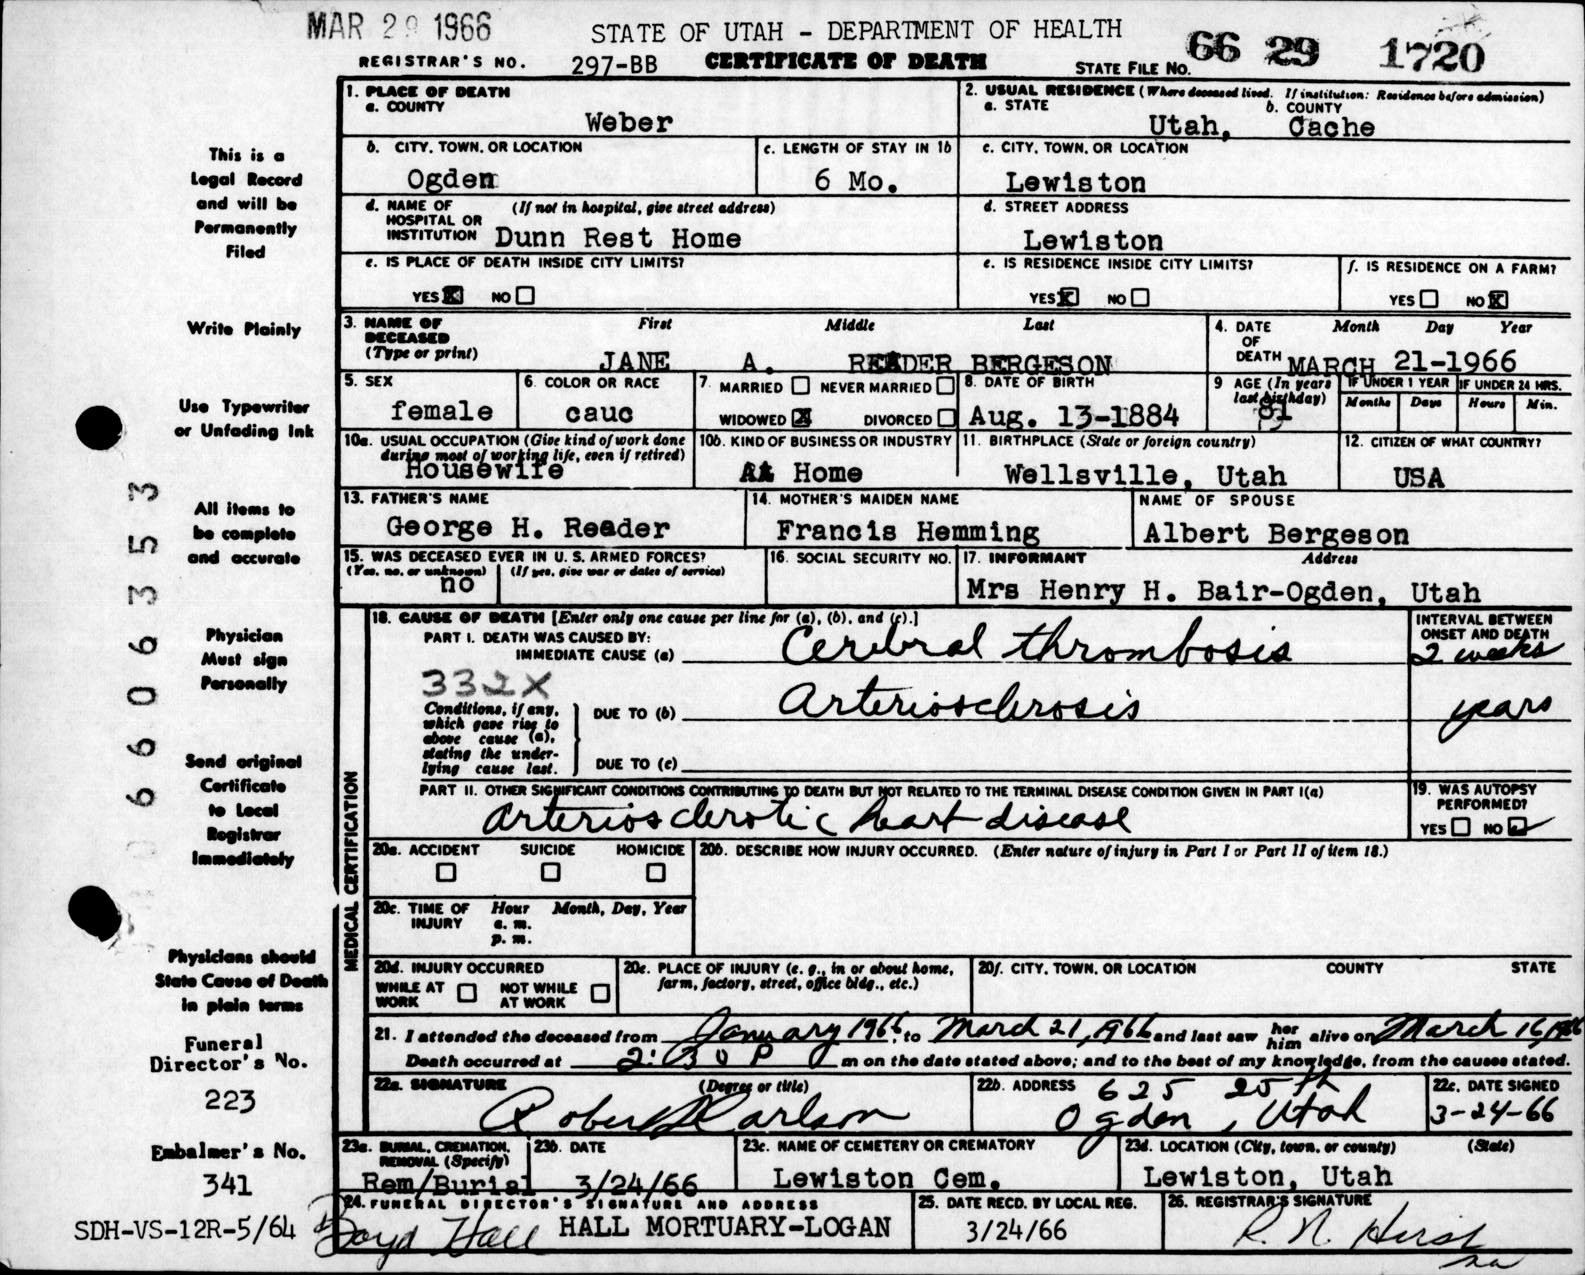 MAR 29 1966
STATE OF UTAH - DEPARTMENT OF HEALTH
REGISTRAR'S NO. 297-BB CERTIFICATE OF DEATH STATE FILE NO. 66 29 1720
1. PLACE OF DEATH
a. COUNTY
Weber
2. USUAL RESIDENCE (Where deceased lived. If institution: Residence before admission)
a. STATE b. COUNTY
Utah, Cache
b. CITY, TOWN, OR LOCATION
Ogden
c. LENGTH OF STAY IN 1b
6 Mo.
c. CITY, TOWN, OR LOCATION
Lewiston
d. NAME OF HOSPITAL OR INSTITUTION (If not in hospital, give street address)
Dunn Rest Home
d. STREET ADDRESS
Lewiston
e. IS PLACE OF DEATH INSIDE CITY LIMITS?
YES X NO
e. IS RESIDENCE INSIDE CITY LIMITS?
YES X NO
f. IS RESIDENCE ON A FARM?
YES NO X
3. NAME OF DECEASED (Type or print) First Middle Last
JANE A. READER BERGESON
4. DATE OF DEATH Month Day Year
MARCH 21-1966
5. SEX
female
6. COLOR OR RACE
cauc
7. MARRIED NEVER MARRIED
WIDOWED X DIVORCED
8. DATE OF BIRTH
Aug. 13-1884
9 AGE (In years last birthday)
81
IF UNDER 1 YEAR IF UNDER 24 HRS.
Months Days Hours Min.
10a. USUAL OCCUPATION (Give kind of work done during most of working life, even if retired)
Housewife
10b. KIND OF BUSINESS OR INDUSTRY
At Home
11. BIRTHPLACE (State or foreign country)
Wellsville, Utah
12. CITIZEN OF WHAT COUNTRY?
USA
13. FATHER'S NAME
George H. Reader
14. MOTHER'S MAIDEN NAME
Francis Hemming
NAME OF SPOUSE
Albert Bergeson
15. WAS DECEASED EVER IN U. S. ARMED FORCES?
(Yes, no, or unknown) (If yes, give war or dates of service)
no
16. SOCIAL SECURITY NO.
17. INFORMANT Address
Mrs Henry H. Bair-Ogden, Utah
MEDICAL CERTIFICATION
18. CAUSE OF DEATH [Enter only one cause per line for (a), (b), and (c).]
INTERVAL BETWEEN ONSET AND DEATH
PART I. DEATH WAS CAUSED BY:
IMMEDIATE CAUSE (a) Cerebral thrombosis 2 weeks
332X
Conditions, if any, which gave rise to above cause (a), stating the underlying cause last.
DUE TO (b) Arteriosclerosis years
DUE TO (c)
PART II. OTHER SIGNIFICANT CONDITIONS CONTRIBUTING TO DEATH BUT NOT RELATED TO THE TERMINAL DISEASE CONDITION GIVEN IN PART I(a)
Arteriosclerotic heart disease
19. WAS AUTOPSY PERFORMED?
YES NO ✓
20a. ACCIDENT SUICIDE HOMICIDE
20b. DESCRIBE HOW INJURY OCCURRED. (Enter nature of injury in Part I or Part II of item 18.)
20c. TIME OF INJURY Hour Month, Day, Year
a. m.
p. m.
20d. INJURY OCCURRED
WHILE AT WORK NOT WHILE AT WORK
20e. PLACE OF INJURY (e. g., in or about home, farm, factory, street, office bldg., etc.)
20f. CITY, TOWN, OR LOCATION COUNTY STATE
21. I attended the deceased from January 1966, to March 21, 1966 and last saw her him alive on March 16, 1966
Death occurred at 2:30 P m on the date stated above; and to the best of my knowledge, from the causes stated.
22a. SIGNATURE (Degree or title)
Robert Carlson
22b. ADDRESS 625 25th
Ogden, Utah
22c. DATE SIGNED
3-24-66
23a. BURIAL, CREMATION, REMOVAL (Specify)
Rem/Burial
23b. DATE
3/24/66
23c. NAME OF CEMETERY OR CREMATORY
Lewiston Cem.
23d. LOCATION (City, town, or county) (State)
Lewiston, Utah
24. FUNERAL DIRECTOR'S SIGNATURE AND ADDRESS
Boyd Hall HALL MORTUARY-LOGAN
25. DATE RECD. BY LOCAL REG.
3/24/66
26. REGISTRAR'S SIGNATURE
R. N. Hirst
This is a
Legal Record
and will be
Permanently
Filed
Write Plainly
Use Typewriter
or Unfading Ink
All items to
be complete
and accurate
Physician
Must sign
Personally
Send original
Certificate
to Local
Registrar
Immediately
Physicians should
State Cause of Death
in plain terms
Funeral
Director's No.
223
Embalmer's No.
341
SDH-VS-12R-5/64
6606353